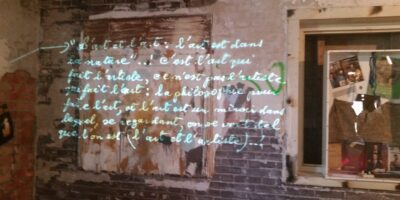 l'art et l'art : l'art est dans
la nature ...! c'est l'art qui
fait l'artiste, ce n'est pas l'artiste
qui fait l'art : la philosophie
l'art est un miroir dans
lequel, se regardant, on se voit tel
que l'on est (l'art et l'artiste)...!